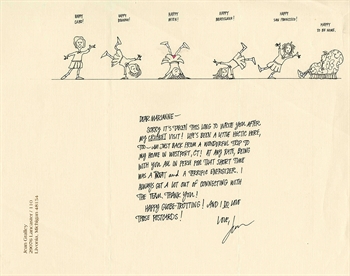 HAPPY
HAPPY
HAPPY
HAPPY
HAPPY
HAPPY
TO BE HOME.
DEAR MARIANNE—
SORRY IT'S TAKEN THIS LONG TO WRITE YOU AFTER
MY VISIT! LIFE'S BEEN A LITTLE HECTIC HERE,
TOO— JUST BACK FROM A WONDERFUL TRIP TO
MY HOME IN WESTPORT, CT! AT ANY RATE, BEING
WITH YOU ALL IN PERU FOR THAT SHORT TIME
WAS A TREAT! AND A TERRIFIC ENERGIZER. I
ALWAYS GET A LOT OUT OF CONNECTING WITH
THE TEAM. THANK YOU!
HAPPY GLOBE-TROTTING! AND I DO LOVE
THOSE POSTCARDS!
LOVE,
Jean
Lancaster
Livonia, Michigan